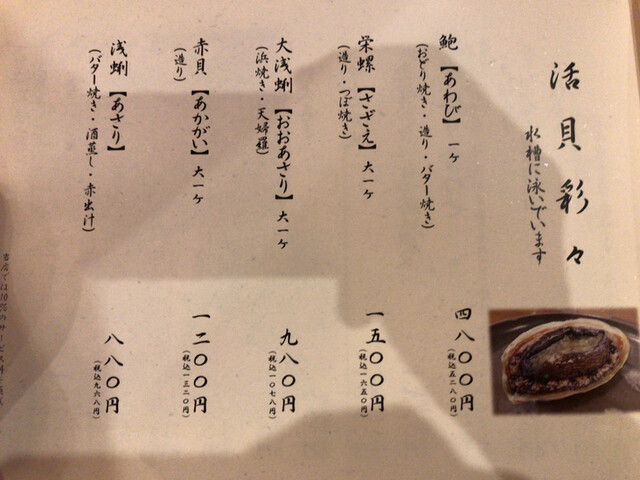 活貝彩々
水槽に泳いでいます
鮑【あわび】一ヶ
(おどり焼き・造り・バター焼き)
四八〇〇円
(税込五二八〇円)
栄螺【さざえ】大一ヶ
(造り・つぼ焼き)
一五〇〇円
(税込一六五〇円)
大浅蜊【おおあさり】大一ヶ
(浜焼き・天婦羅)
九八〇円
(税込一〇七八円)
赤貝【あかがい】大一ヶ
(造り)
一二〇〇円
(税込一三二〇円)
浅蜊【あさり】
(バター焼き・酒蒸し・赤出汁)
八八〇円
(税込九六八円)
当店では10%のサービス料